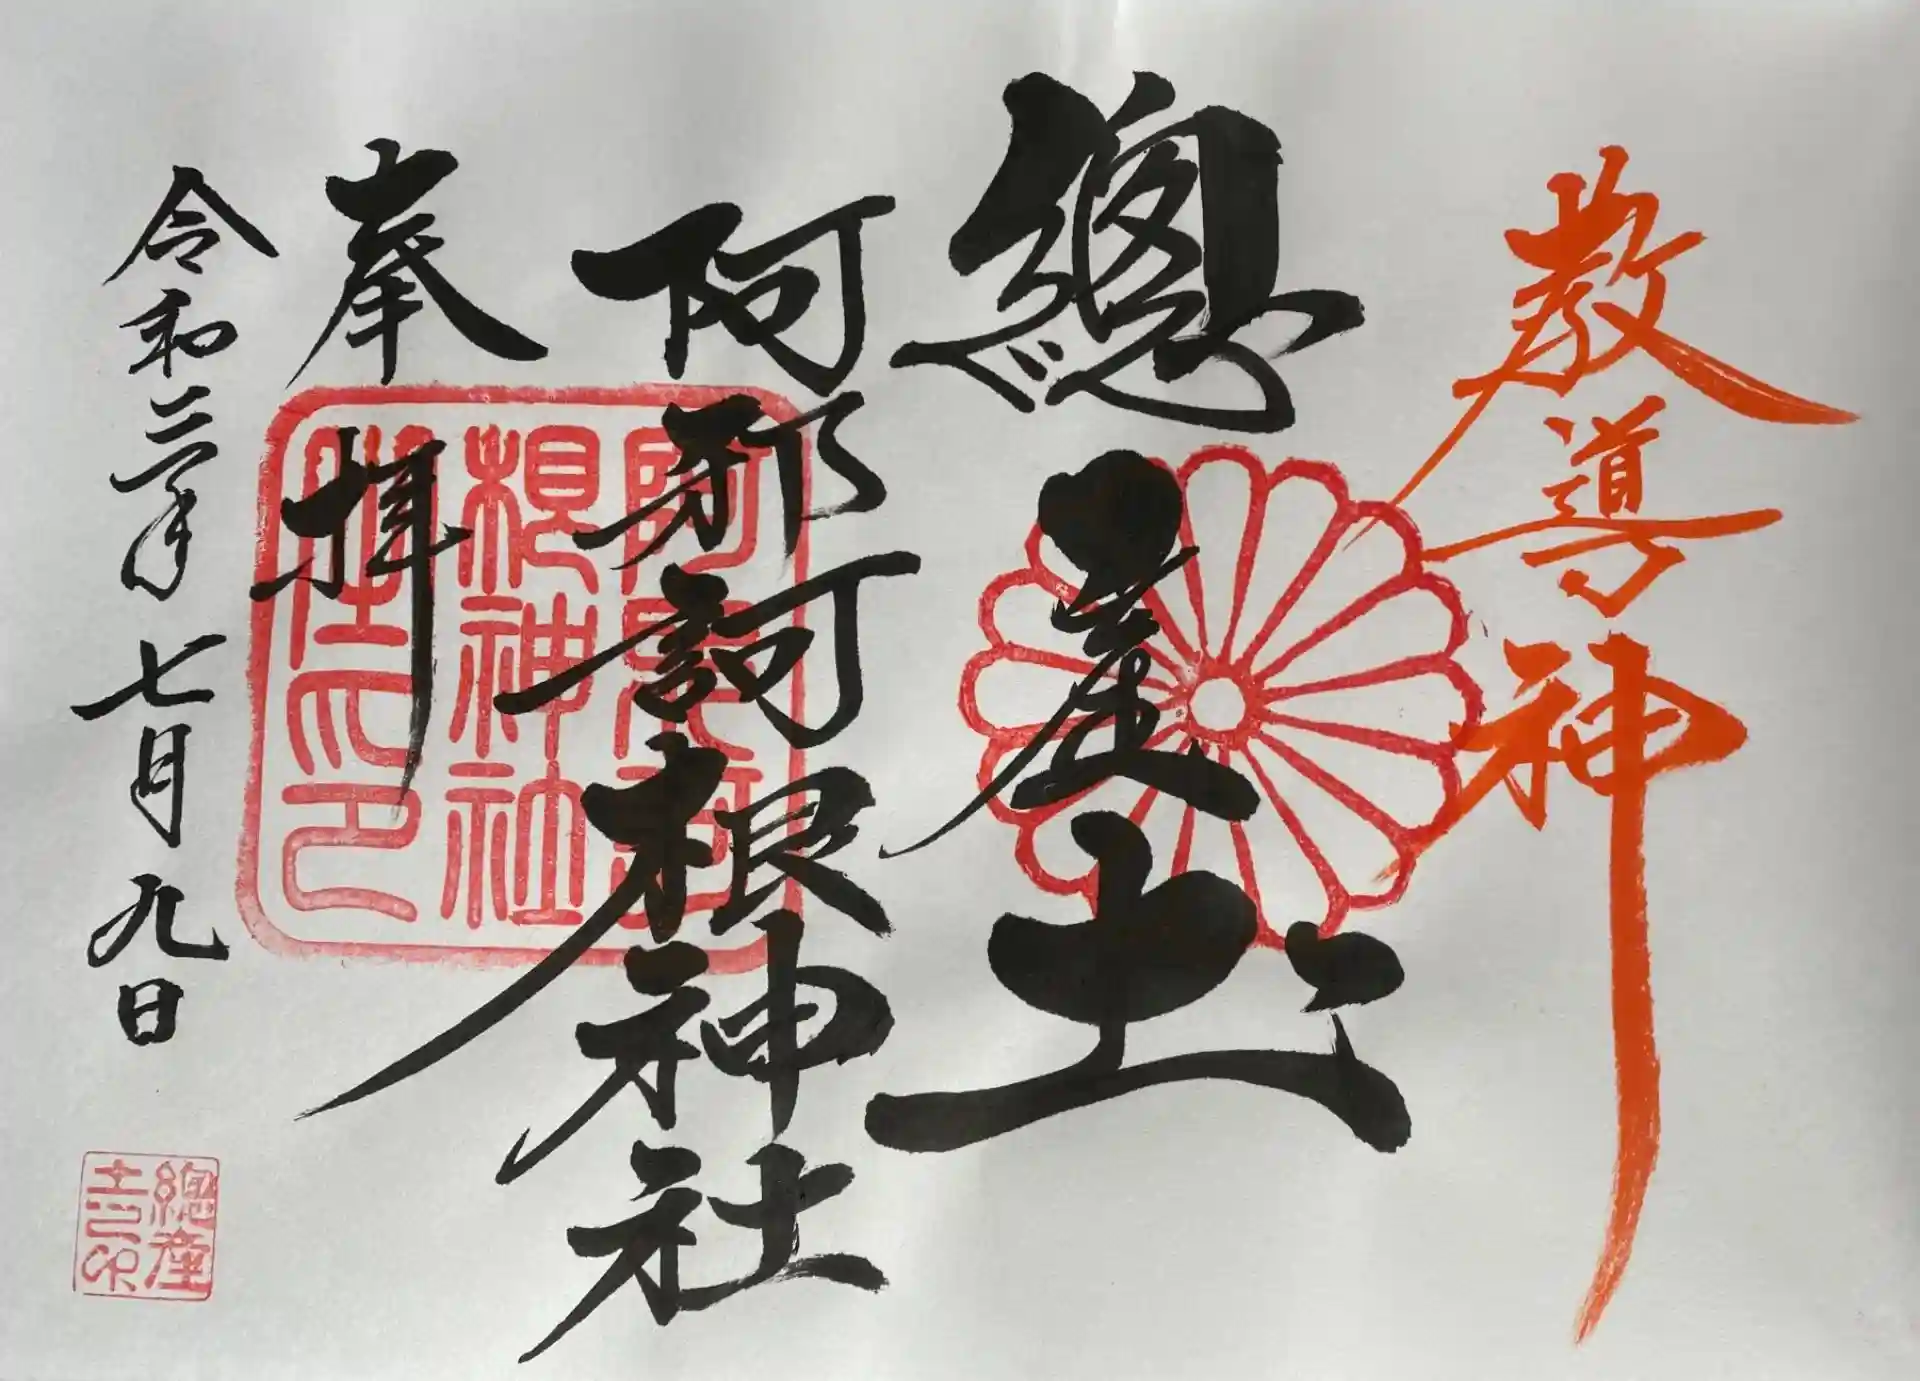 教導神
總産土
阿邪訶根神社
奉拝
令和三年七月九日
根神社
之印
總産
土之印